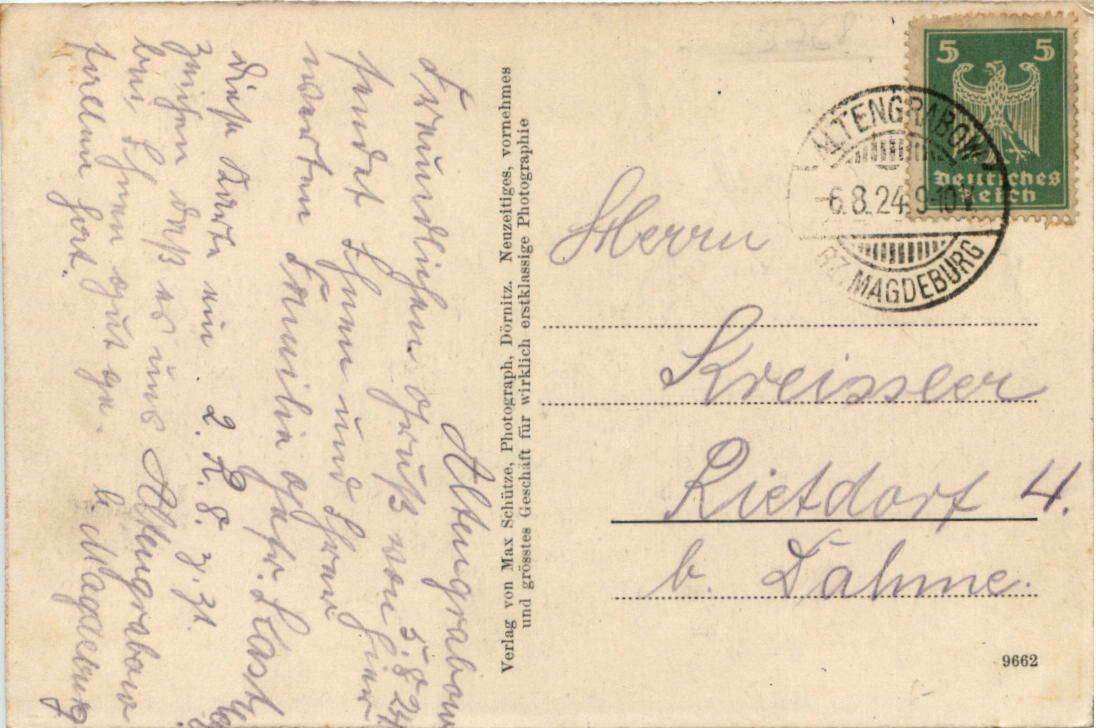 Altengrabow
5.8.24
Freundlichen Gruß von hier
sendet Ihnen und Ihrer
werten Familie Gefr.
diese Karte ein 2. R. 8. z. Zt.
Zeichen daß es uns Altengrabow
bei Ihnen gut ge- b. Magdeburg
fallen hat.
Verlag von Max Schütze, Photograph, Dörnitz. Neuzeitiges, vornehmes
und grösstes Geschäft für wirklich erstklassige Photographie
5 5
Deutsches
Reich
ALTENGRABOW
6.8.24. 9-10V
BZ. MAGDEBURG
Herrn
Kreissler
Rietdorf 4.
b. Dahme.
9662